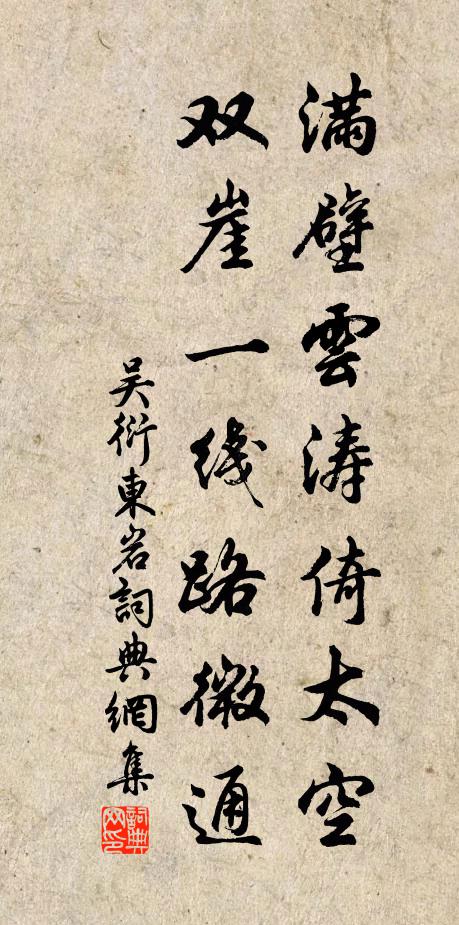 满壁雲涛倚太空
双崖一线路微通
吴衍東岩詞典網集
詞典网印